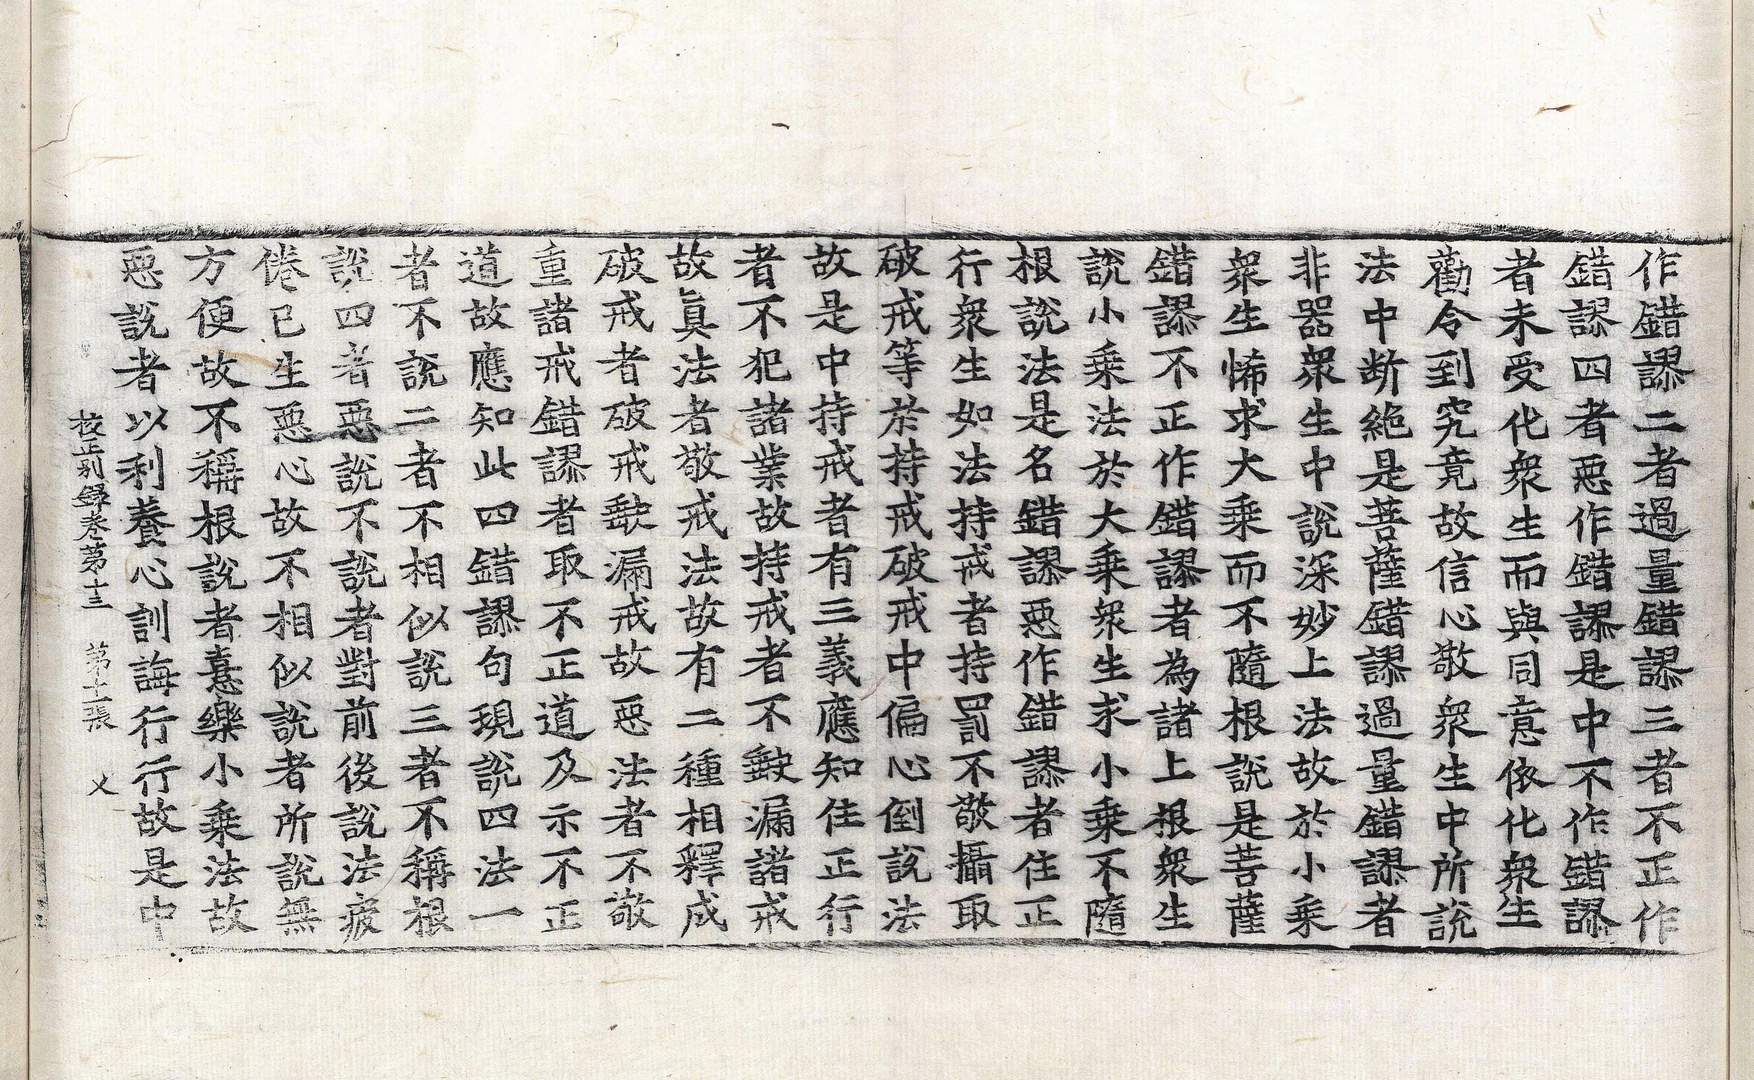 作錯謬二者過量錯謬三者不正作
錯謬四者惡作錯謬是中不作錯謬
者未受化衆生而與同意依化衆生
勸令到究竟故信心敬衆生中所說
法中断絶是菩薩錯謬過量錯謬者
非器衆生中說深妙上法故於小乘
衆生悕求大乘而不隨根說是菩薩
錯謬不正作錯謬者為諸上根衆生
說小乘法於大乘衆生求小乘不隨
根說法是名錯謬惡作錯謬者住正
行衆生如法持戒者持罰不敬攝取
破戒等於持戒破戒中偏心倒說法
故是中持戒者有三義應知住正行
者不犯諸業故持戒者不䡖漏諸戒
故真法者敬戒法故有二種相釋成
破戒者破戒䡖漏戒故惡法者不敬
重諸戒錯謬者取不正道及示不正
道故應知此四錯謬句現說四法一
者不說二者不相似說三者不稱根
說四者惡說不說者對前後說法疲
倦已生惡心故不相似說者所說無
方便故不稱根說者憙樂小乘法故
惡說者以利養心訓誨行行故是中
校正别錄卷第十三　第十二張　乂